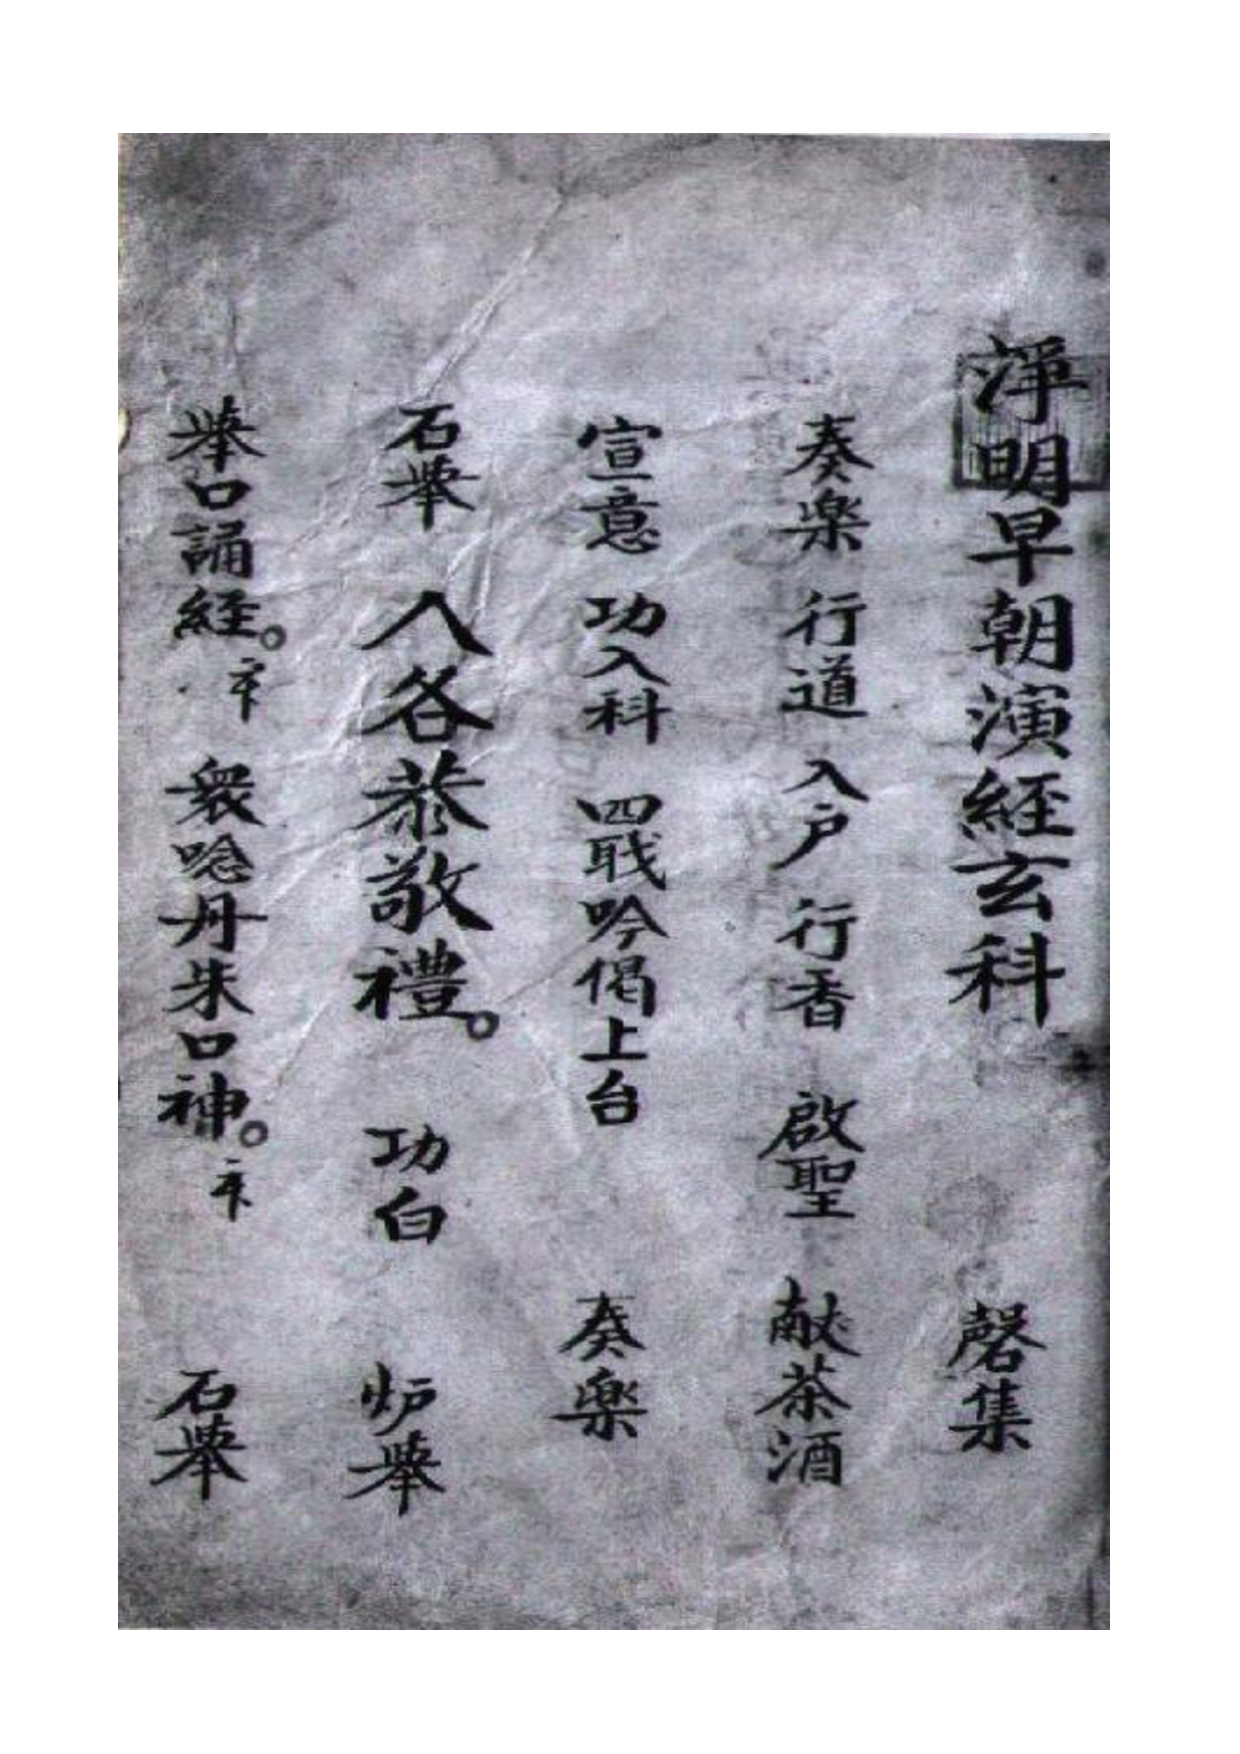 淨明早朝演経玄科 磬集
奏楽 行道 入户 行香 啟聖 献茶酒
宣意 功入科 四戢吟偈上台 奏楽
石舉 八各恭敬禮。 功白 炉舉
舉口誦経。 衆唸丹朱口神。 石舉